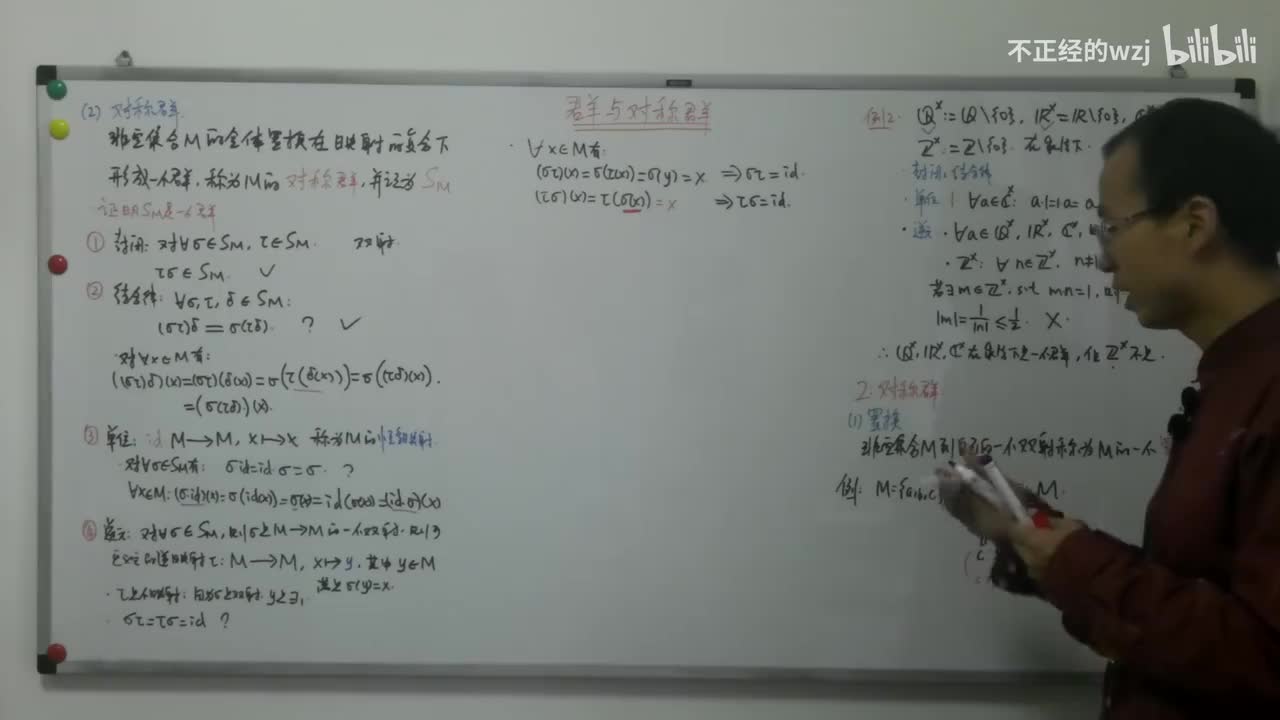 不正经的wzj bilibili
(2) 对称群.
非空集合M的全体置换在映射的复合下
形成一个群,称为M的对称群,并记为 S_M
证明S_M是一个群
① 封闭: 对∀σ∈S_M, τ∈S_M. 双射.
τσ∈S_M. ✓
② 结合律: ∀σ,τ,δ∈S_M:
(στ)δ = σ(τδ). ? ✓
·对∀x∈M有:
((στ)δ)(x)=(στ)(δ(x))=σ(τ(δ(x)))=σ((τδ)(x)).
=(σ(τδ))(x).
③ 单位: id M→M, x↦x 称为M的恒等映射.
·对∀σ∈S_M有: σid=id σ=σ. ?
∀x∈M: (σid)(x)=σ(id(x))=σ(x)=id(σ(x))=(id σ)(x)
④ 逆元: 对∀σ∈S_M, 则σ是M→M的一个双射. 则可
定义的逆映射τ: M→M, x↦y, 其中 y∈M
满足σ(y)=x.
·τ是个映射: 因为σ是双射, y是∃,
· στ=τσ=id ?
群与对称群
· ∀x∈M有:
(στ)(x)=σ(τ(x))=σ(y)=x ⇒στ=id.
(τσ)(x)=τ(σ(x))=x ⇒τσ=id.
例2. Q^x:=Q\{0}, R^x=R\{0}, C^x
Z^x:=Z\{0}. 在乘法下.
·封闭, 结合律
·单位 1 ∀a∈C^x: a·1=1a=a
·逆 ·∀a∈Q^x, R^x, C^x,
·Z^x: ∀n∈Z^x, n≠1
若∃m∈Z^x, s.t mn=1,
|m|=1/|n|≤1/2. X.
∴ Q^x, R^x, C^x在乘法下是一个群, 但 Z^x不是.
2. 对称群
(1) 置换
非空集合M到自己的一个双射称为M的一个
例: M={a,b,c M.